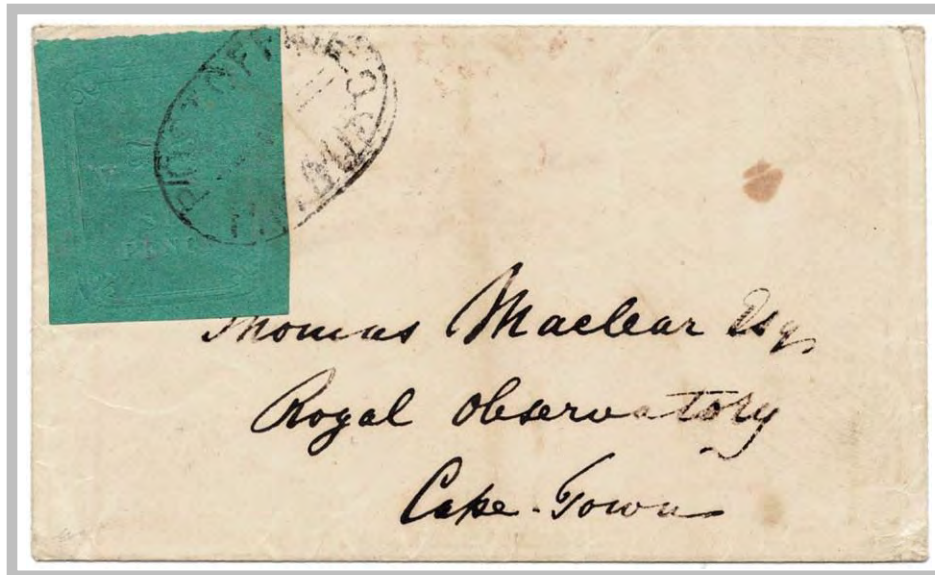 POST OFFICE
Thomas Maclear Esq,
Royal Observatory
Cape-Town